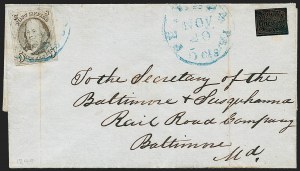 POST OFFICE
NOV
20
5 cts
To the Secretary of the
Baltimore & Susquehanna
Rail Road Company
Baltimore
Md.